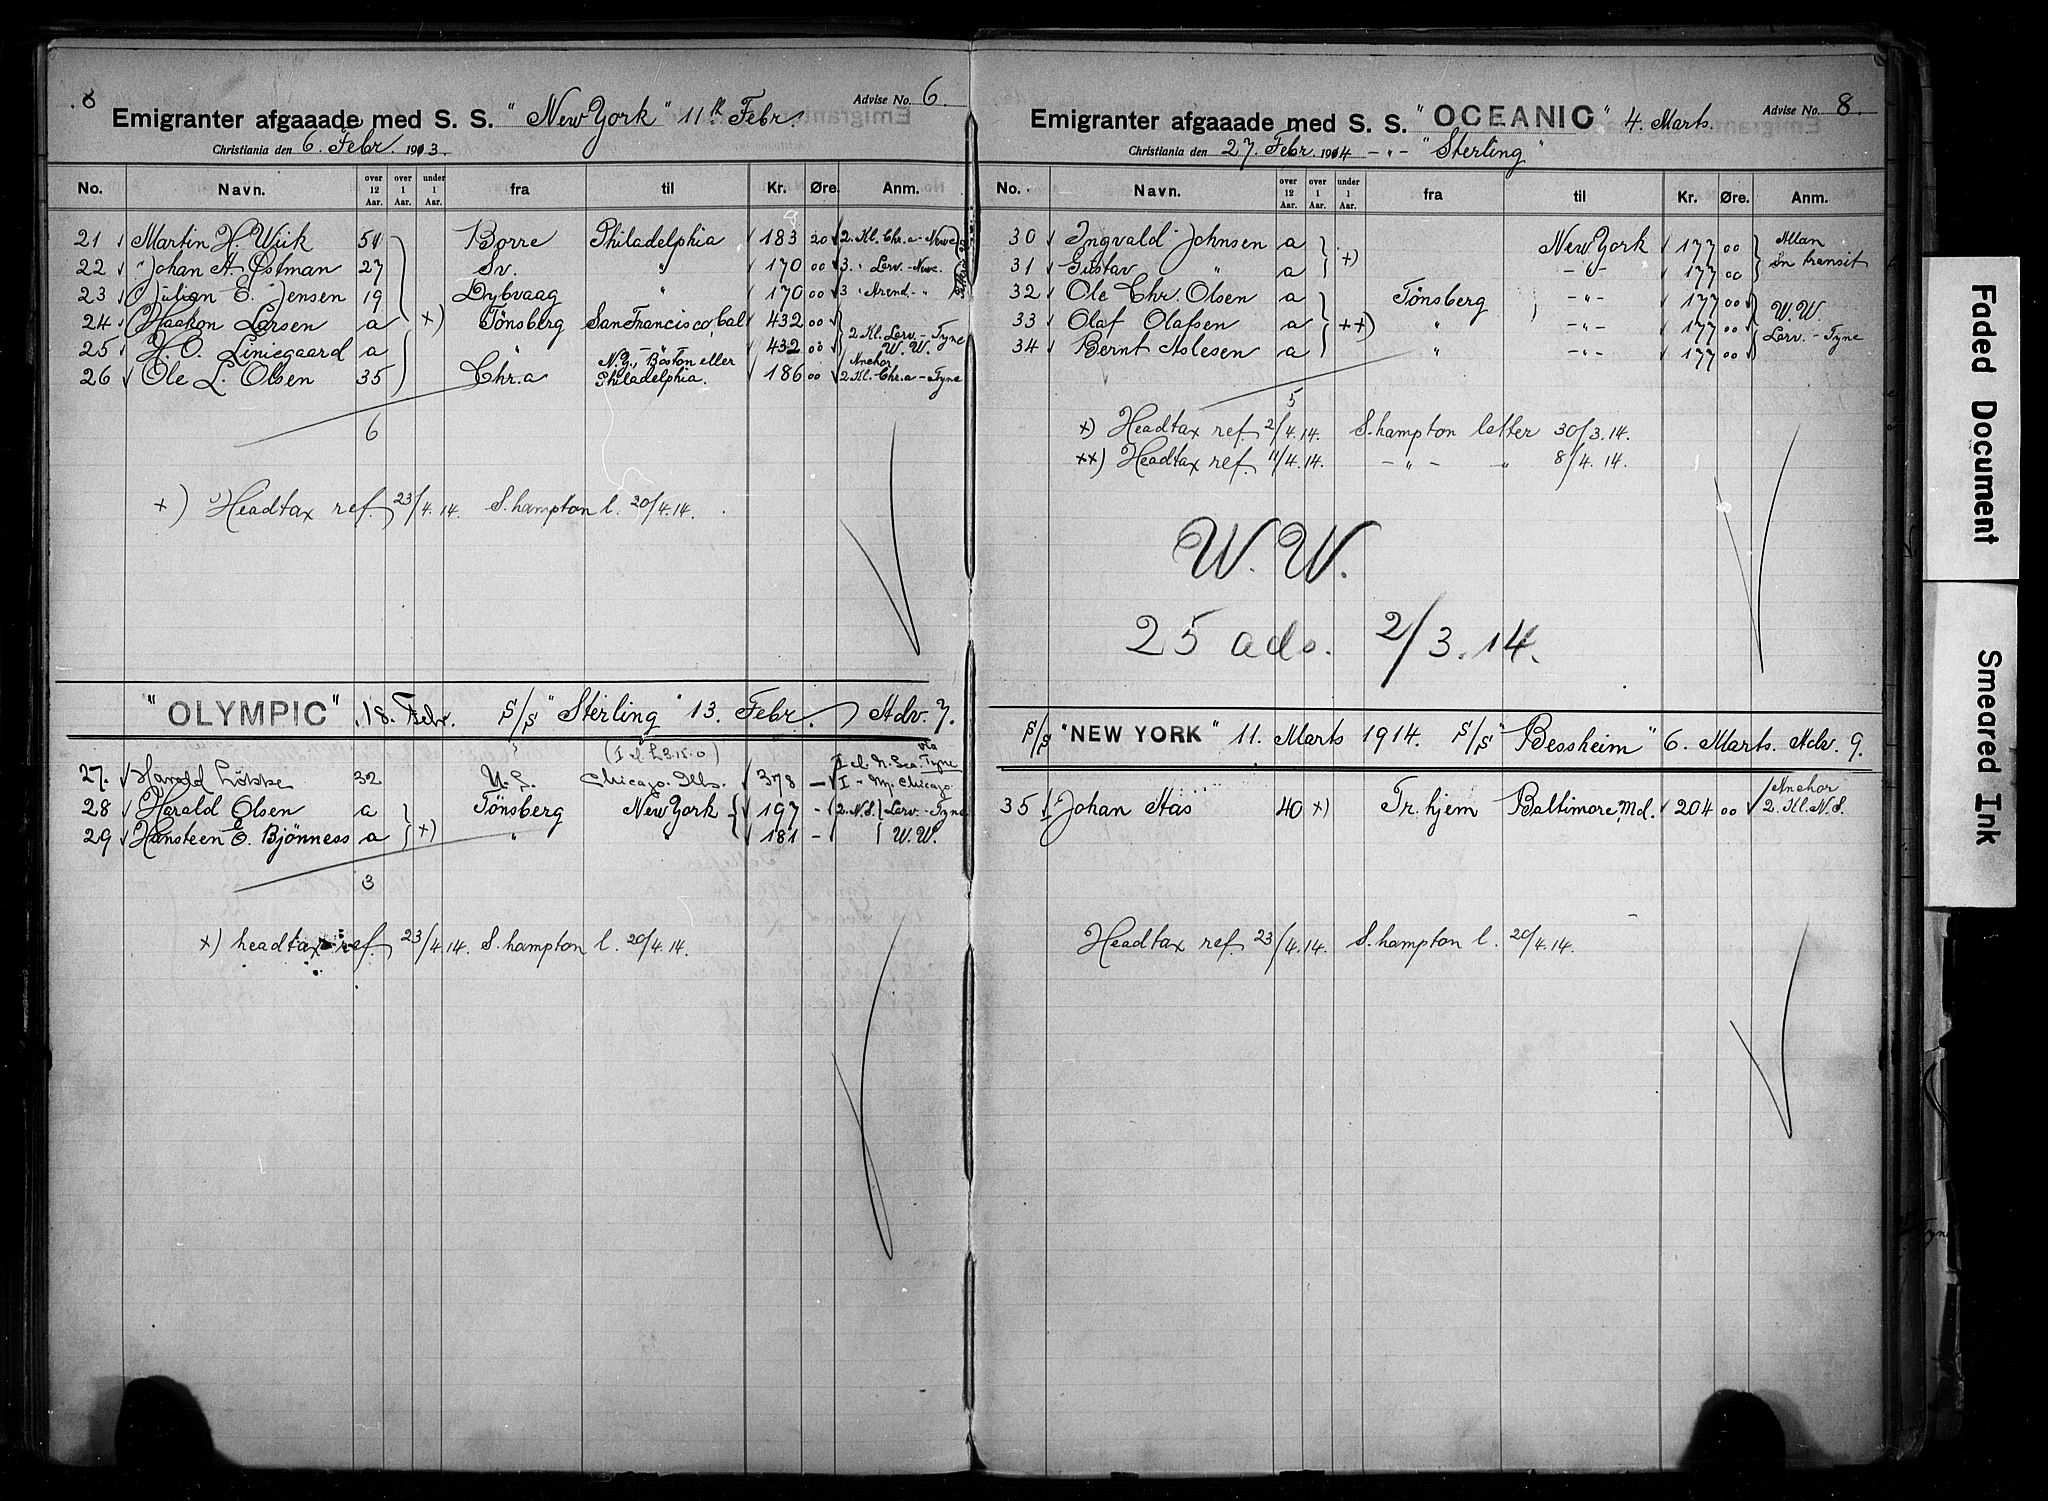 Advise No. 6.
Emigranter afgaaade med S. S. "New York" 11th Febr.
Christiania den 6. Febr. 1913.
No. Navn. over 12 Aar. over 1 Aar. under 1 Aar. fra til Kr. Øre. Anm.
21 Martin H. Wiik 51 Borre Philadelphia 183 20 2. Kl. Chr.a - Newc
22 Johan A. Östman 27 Sv. " 170 00 3. " Larv. - Newc.
23 Julian E. Jensen 19 Dybvaag " 170 00 3 " Arend. - "
24 Haakon Larsen a x) Tönsberg San Francisco, Cal 432 00 2 Kl. Larv. - Tyne
25 H. O. Liniegaard a " - " - 432 00 W. W.
26 Ole L. Olsen 35 Chr.a N.Y., Boston eller Philadelphia. 186 00 Anchor 2 Kl. Chr.a - Tyne
6
x) Headtax ref. 23/4.14. S.hampton l. 20/4.14.
"OLYMPIC" 18. Febr. S/S "Sterling" 13. Febr. Adv. 7.
27. Harald Lökke 32 U. S. Chicago. Ills. 378 - I - M. Chicago
28 Harald Olsen a Tönsberg New York 197 - 2. N.S. Larv. - Tyne
29 Hansteen E. Bjönness a x) " " 181 - W. W.
3
x) headtax ref. 23/4.14. S.hampton l. 20/4.14.
Advise No. 8.
Emigranter afgaaade med S. S. "OCEANIC" 4. Marts.
Christiania den 27. Febr. 1914 - " - "Sterling"
No. Navn. over 12 Aar. over 1 Aar. under 1 Aar. fra til Kr. Øre. Anm.
30 Ingvald Johnsen a x) New York 177 00 Allan
31 Gustav " a - " - 177 00 In transit
32 Ole Chr. Olsen a Tönsberg - " - 177 00
33 Olaf Olafsen a xx) " - " - 177 00 W. W.
34 Bernt Aslesen a " - " - 177 00 Larv. - Tyne
5
x) Headtax ref. 2/4.14. S.hampton letter 30/3.14.
xx) Headtax ref. 11/4.14. - " - " 8/4.14.
W. W.
25 ads. 2/3.14.
S/S "NEW YORK" 11. Marts 1914. S/S "Bessheim" 6. Marts. Adv. 9.
35 Johan Aas 40 x) Tr.hjem Baltimore, Md. 204 00 Anchor 2. Kl. N.S.
Headtax ref. 23/4.14. S.hampton l. 20/4.14.
Faded Document
Smeared Ink